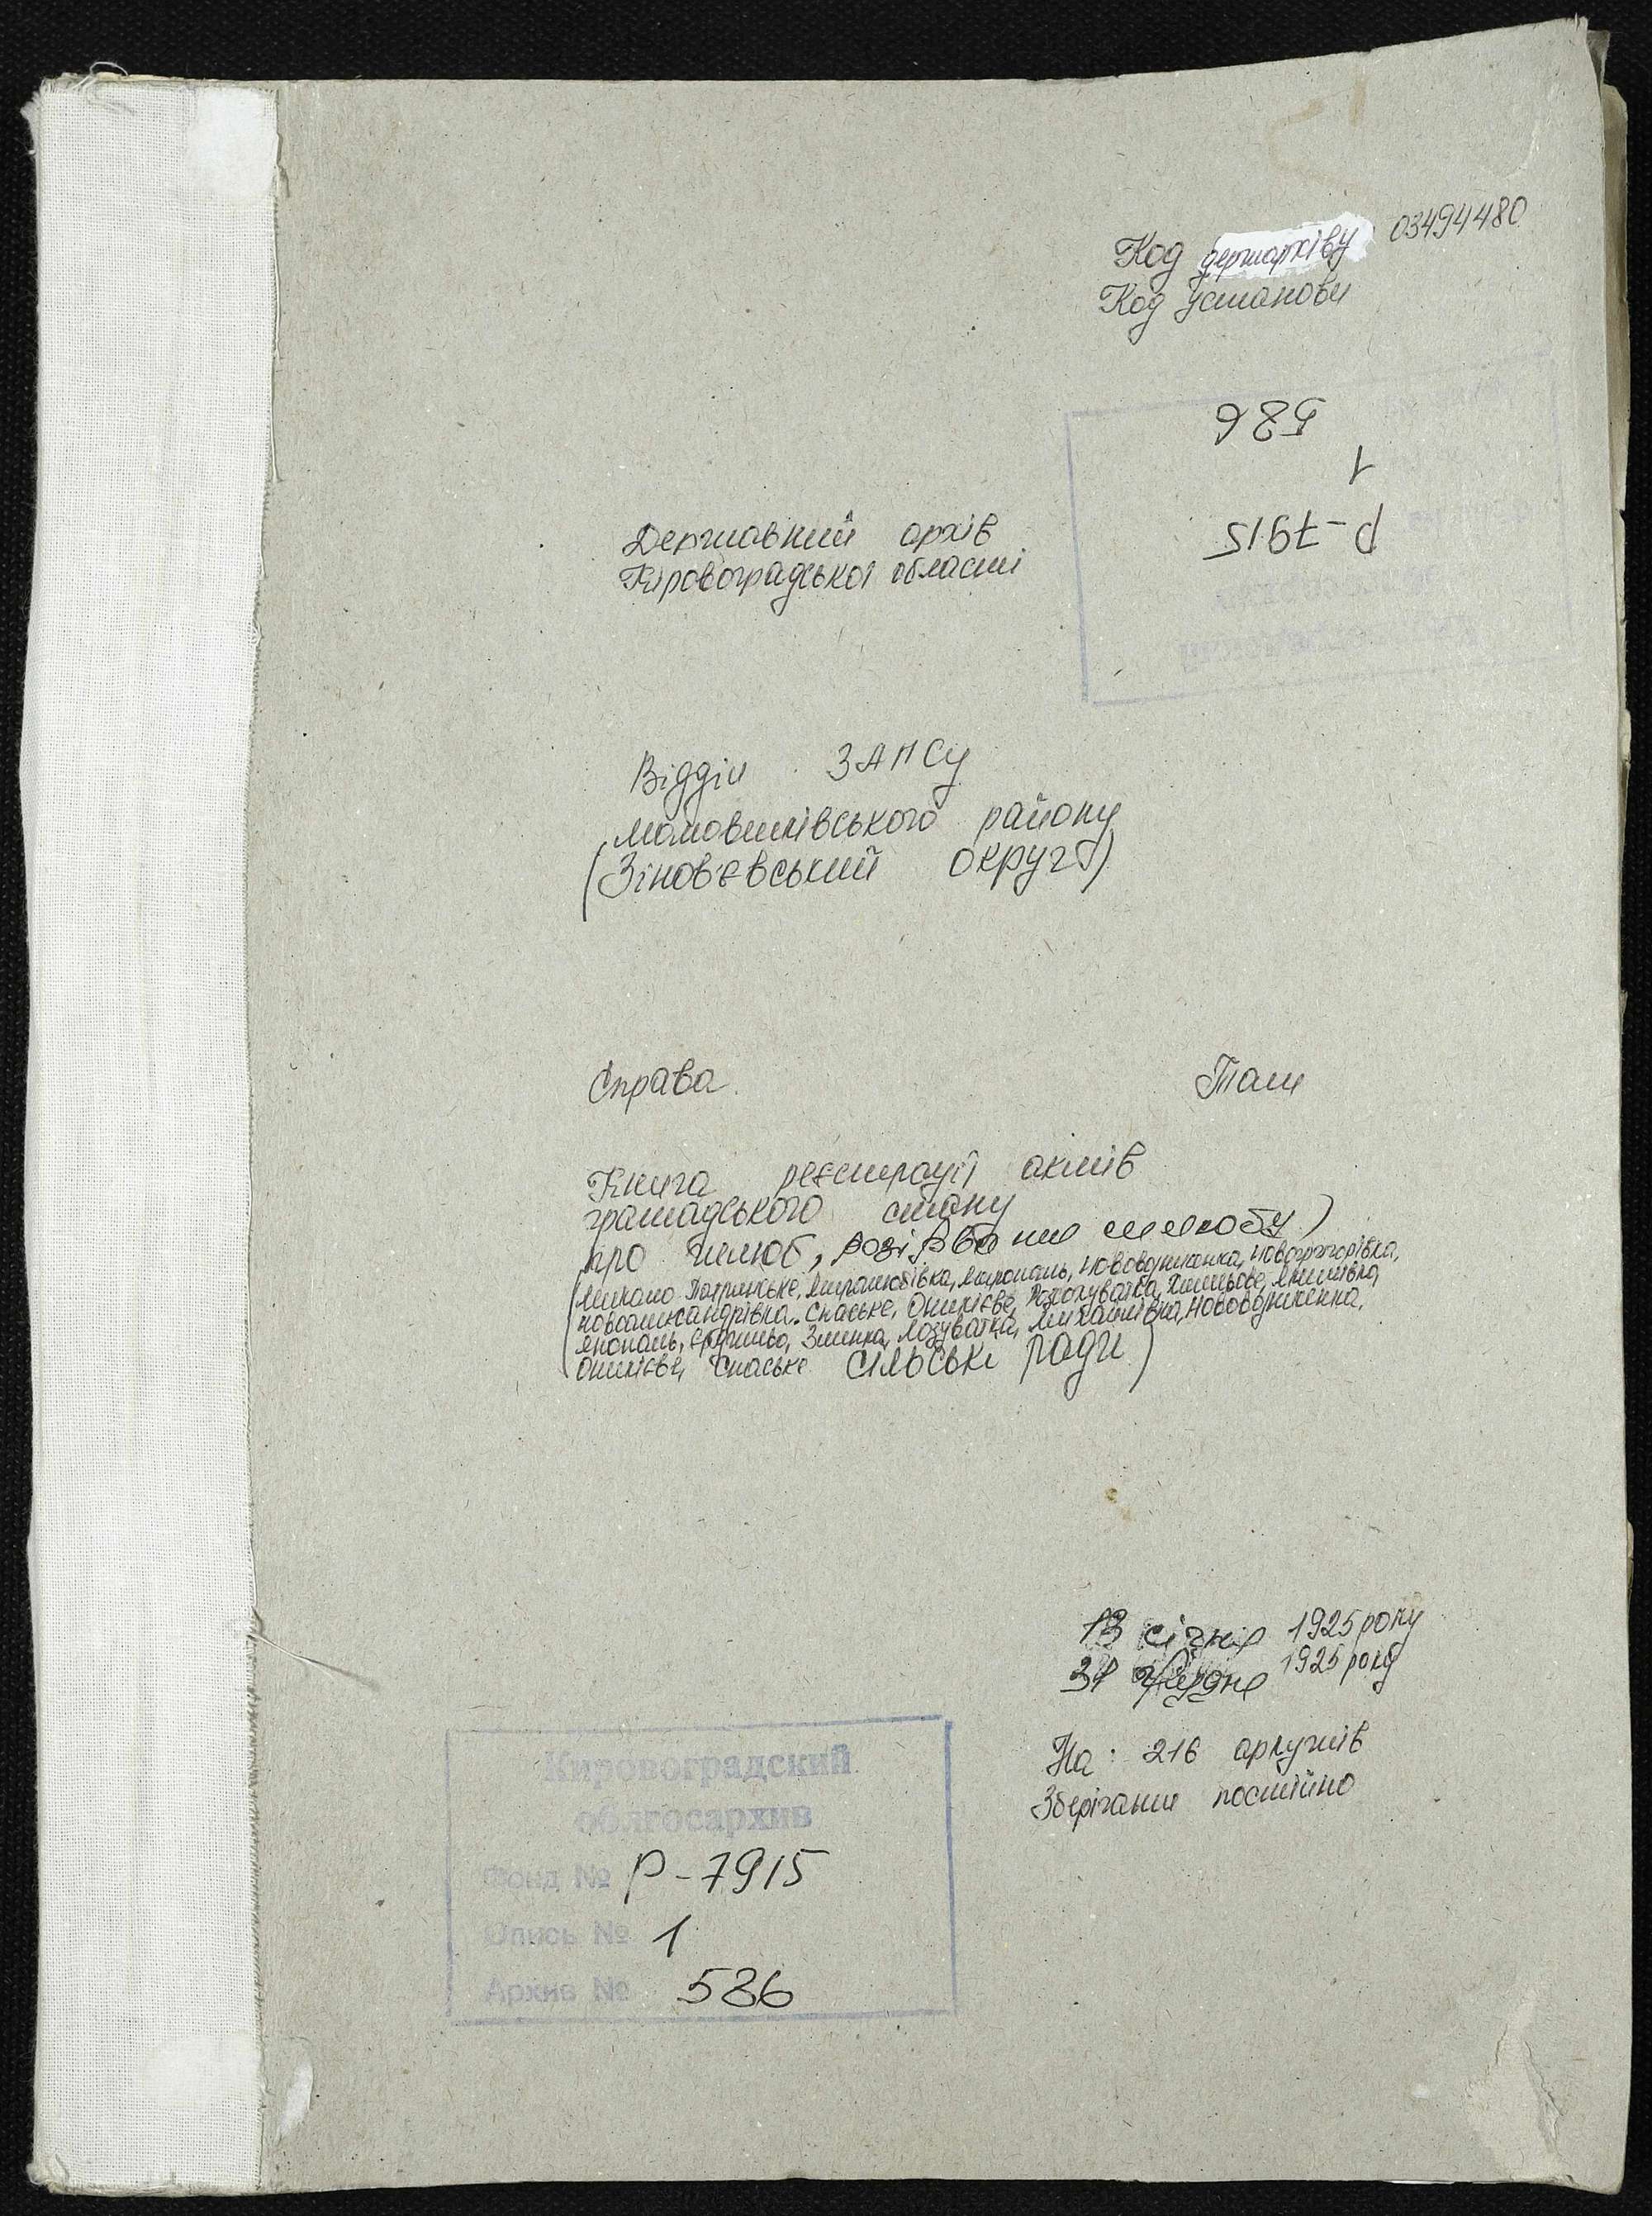 Код держархіву 03494480
Код установи
586
1
Р-7915
Державний архів
Кіровоградської області
Відділ ЗАГСу
району
(Зінов'євський округ)
Справа Том
Книга реєстрації актів
громадського стану
про шлюб, розірвання шлюбу)
Миролюбівка, Новогригорівка,
Новоолександрівка, Спаське, Розсохуватка, Хмельове,
Злинка, Лозуватка, Михайлівка,
Спаське сільські ради)
13 січня 1925 року
31 грудня 1925 року
На: 216 аркушів
Зберігати постійно
Кировоградский
облгосархив
Фонд № Р-7915
Опись № 1
Архив № 586